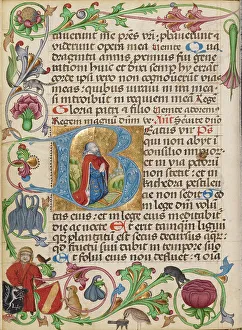 auerunt me pres vri: probauerunt et
viderunt opera mea Venite Qua
draginta annis proximus fui gene
rationi huic et dixi semper hij errant
corde ipsi vero non cognouerunt vias
meas: quibus iuraui in ira mea
si introibunt in requiem meā Rege
Gloria patri et filio Venite
Regem magnū dnm Añ Seruite dno
Beatus vir
qui non
abijt in
consilio
impior
in via pecco
non stetit:
et in
cathedra pestilen
non sedit
Sed
in lege dni volū
tas eius: et in lege eius meditabit
die ac nocte Et erit tamquam lig
quod plantatū est secus decursus aqr:
quod fructū suū dabit in tempore suo
Et foliū eius non defluet: et